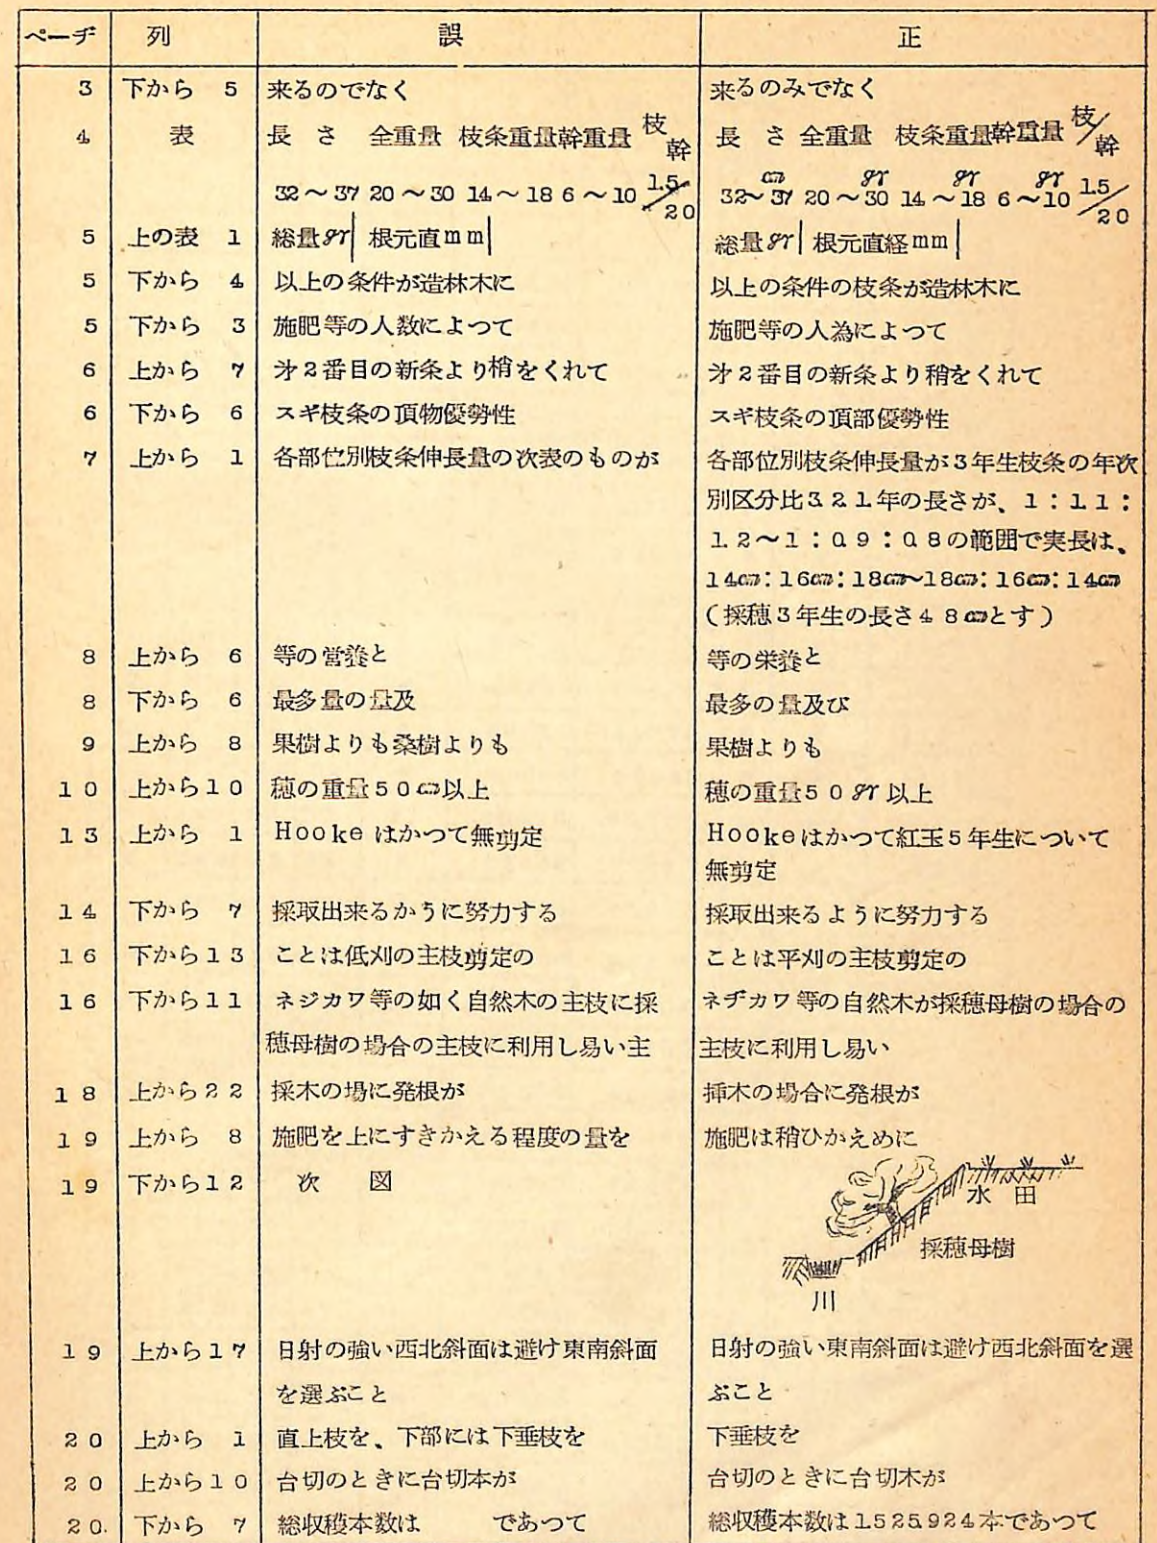 ペーヂ 列 誤 正
3 下から 5 来るのでなく 来るのみでなく
4 表 長さ 全重量 枝条重量 幹重量 枝/幹 長さ 全重量 枝条重量 幹重量 枝/幹
32～37 20～30 14～18 6～10 1.5/20 32～37cm 20～30gr 14～18gr 6～10gr 1.5/20
5 上の表 1 総量gr| 根元直mm| 総量gr| 根元直経mm|
5 下から 4 以上の条件が造林木に 以上の条件の枝条が造林木に
5 下から 3 施肥等の人数によつて 施肥等の人為によつて
6 上から 7 才2番目の新条より梢をくれて 才2番目の新条より稍をくれて
6 下から 6 スギ枝条の頂物優勢性 スギ枝条の頂部優勢性
7 上から 1 各部位別枝条伸長量の次表のものが 各部位別枝条伸長量が3年生枝条の年次
別区分比3.2.1.年の長さが、1：1.1：
1.2～1：0.9：0.8の範囲で実長は、
14cm：16cm：18cm～18cm：16cm：14cm
（採穂3年生の長さ48cmとす）
8 上から 6 等の営養と 等の栄養と
8 下から 6 最多量の量及 最多の量及び
9 上から 8 果樹よりも桑樹よりも 果樹よりも
10 上から10 穂の重量50cm以上 穂の重量50gr以上
13 上から 1 Hookeはかつて無剪定 Hookeはかつて紅玉5年生について
無剪定
14 下から 7 採取出来るかうに努力する 採取出来るように努力する
16 下から13 ことは低刈の主枝剪定の ことは平刈の主枝剪定の
16 下から11 ネジカワ等の如く自然木の主枝に採 ネヂカワ等の自然木が採穂母樹の場合の
穂母樹の場合の主枝に利用し易い主 主枝に利用し易い
18 上から22 採木の場に発根が 挿木の場合に発根が
19 上から 8 施肥を上にすきかえる程度の量を 施肥は稍ひかえめに
19 下から12 次図
水田
採穂母樹
川
19 上から17 日射の強い西北斜面は避け東南斜面 日射の強い東南斜面は避け西北斜面を選
を選ぶこと ぶこと
20 上から 1 直上枝を、下部には下垂枝を 下垂枝を
20 上から10 台切のときに台切本が 台切のときに台切木が
20. 下から 7 総収穫本数は であつて 総収穫本数は1.525.924本であつて